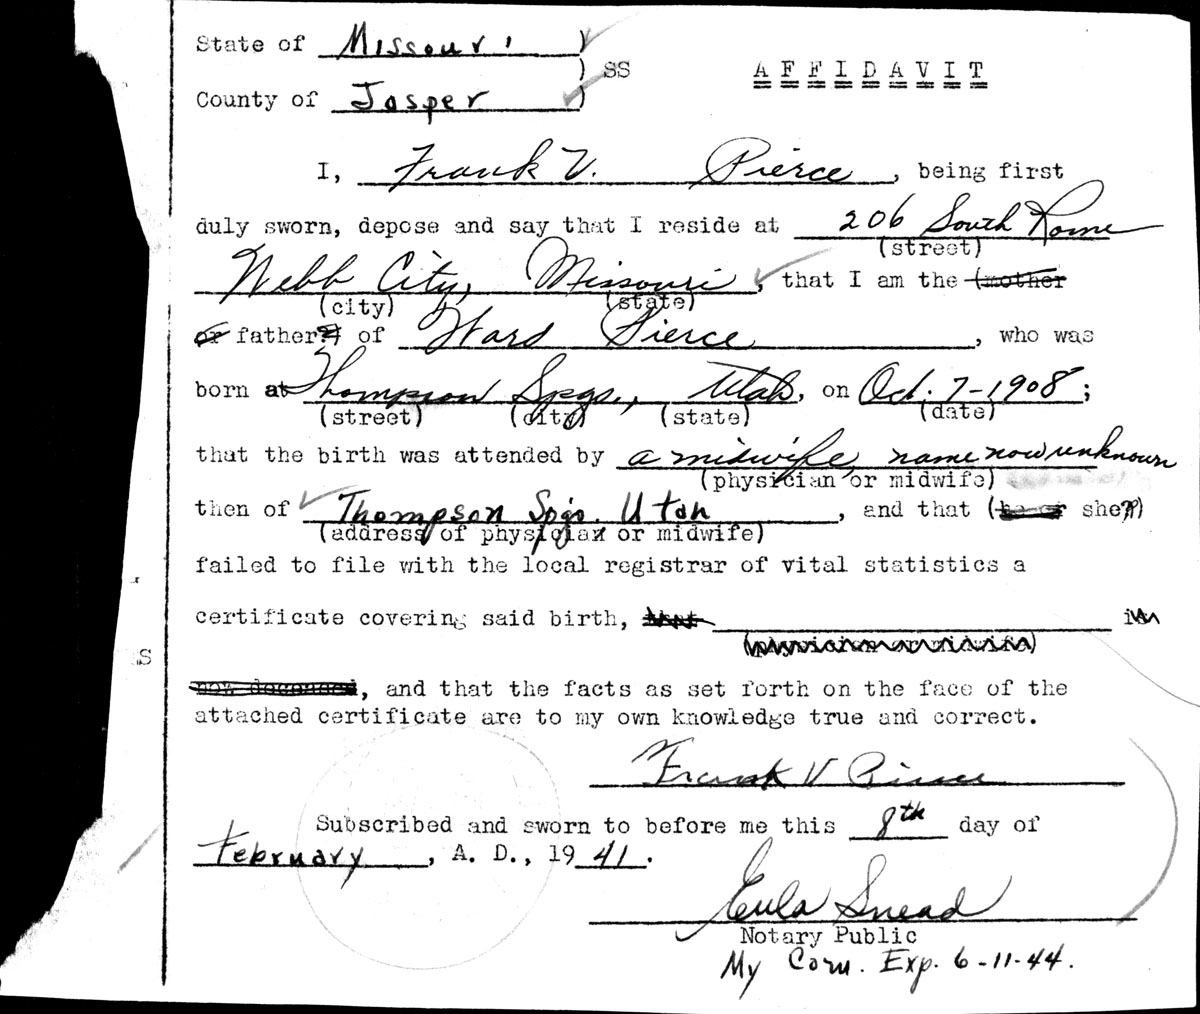 State of Missouri )
) SS AFFIDAVIT
County of Jasper )
I, Frank V. Pierce, being first
duly sworn, depose and say that I reside at 206 South Rome
(street)
Webb City, Missouri, that I am the (mother
(city) (state)
or father) of Ward Pierce, who was
born at Thompson Spgs., Utah, on Oct. 7-1908;
(street) (city) (state) (date)
that the birth was attended by a midwife, name now unknown
(physician or midwife)
then of Thompson Spgs. Utah, and that (he or she)
(address of physician or midwife)
failed to file with the local registrar of vital statistics a
certificate covering said birth, that is
(physician or midwife)
now deceased, and that the facts as set forth on the face of the
attached certificate are to my own knowledge true and correct.
Frank V Pierce
Subscribed and sworn to before me this 8th day of
February, A. D., 1941.
Eula Snead
Notary Public
My Com. Exp. 6-11-44.
SS